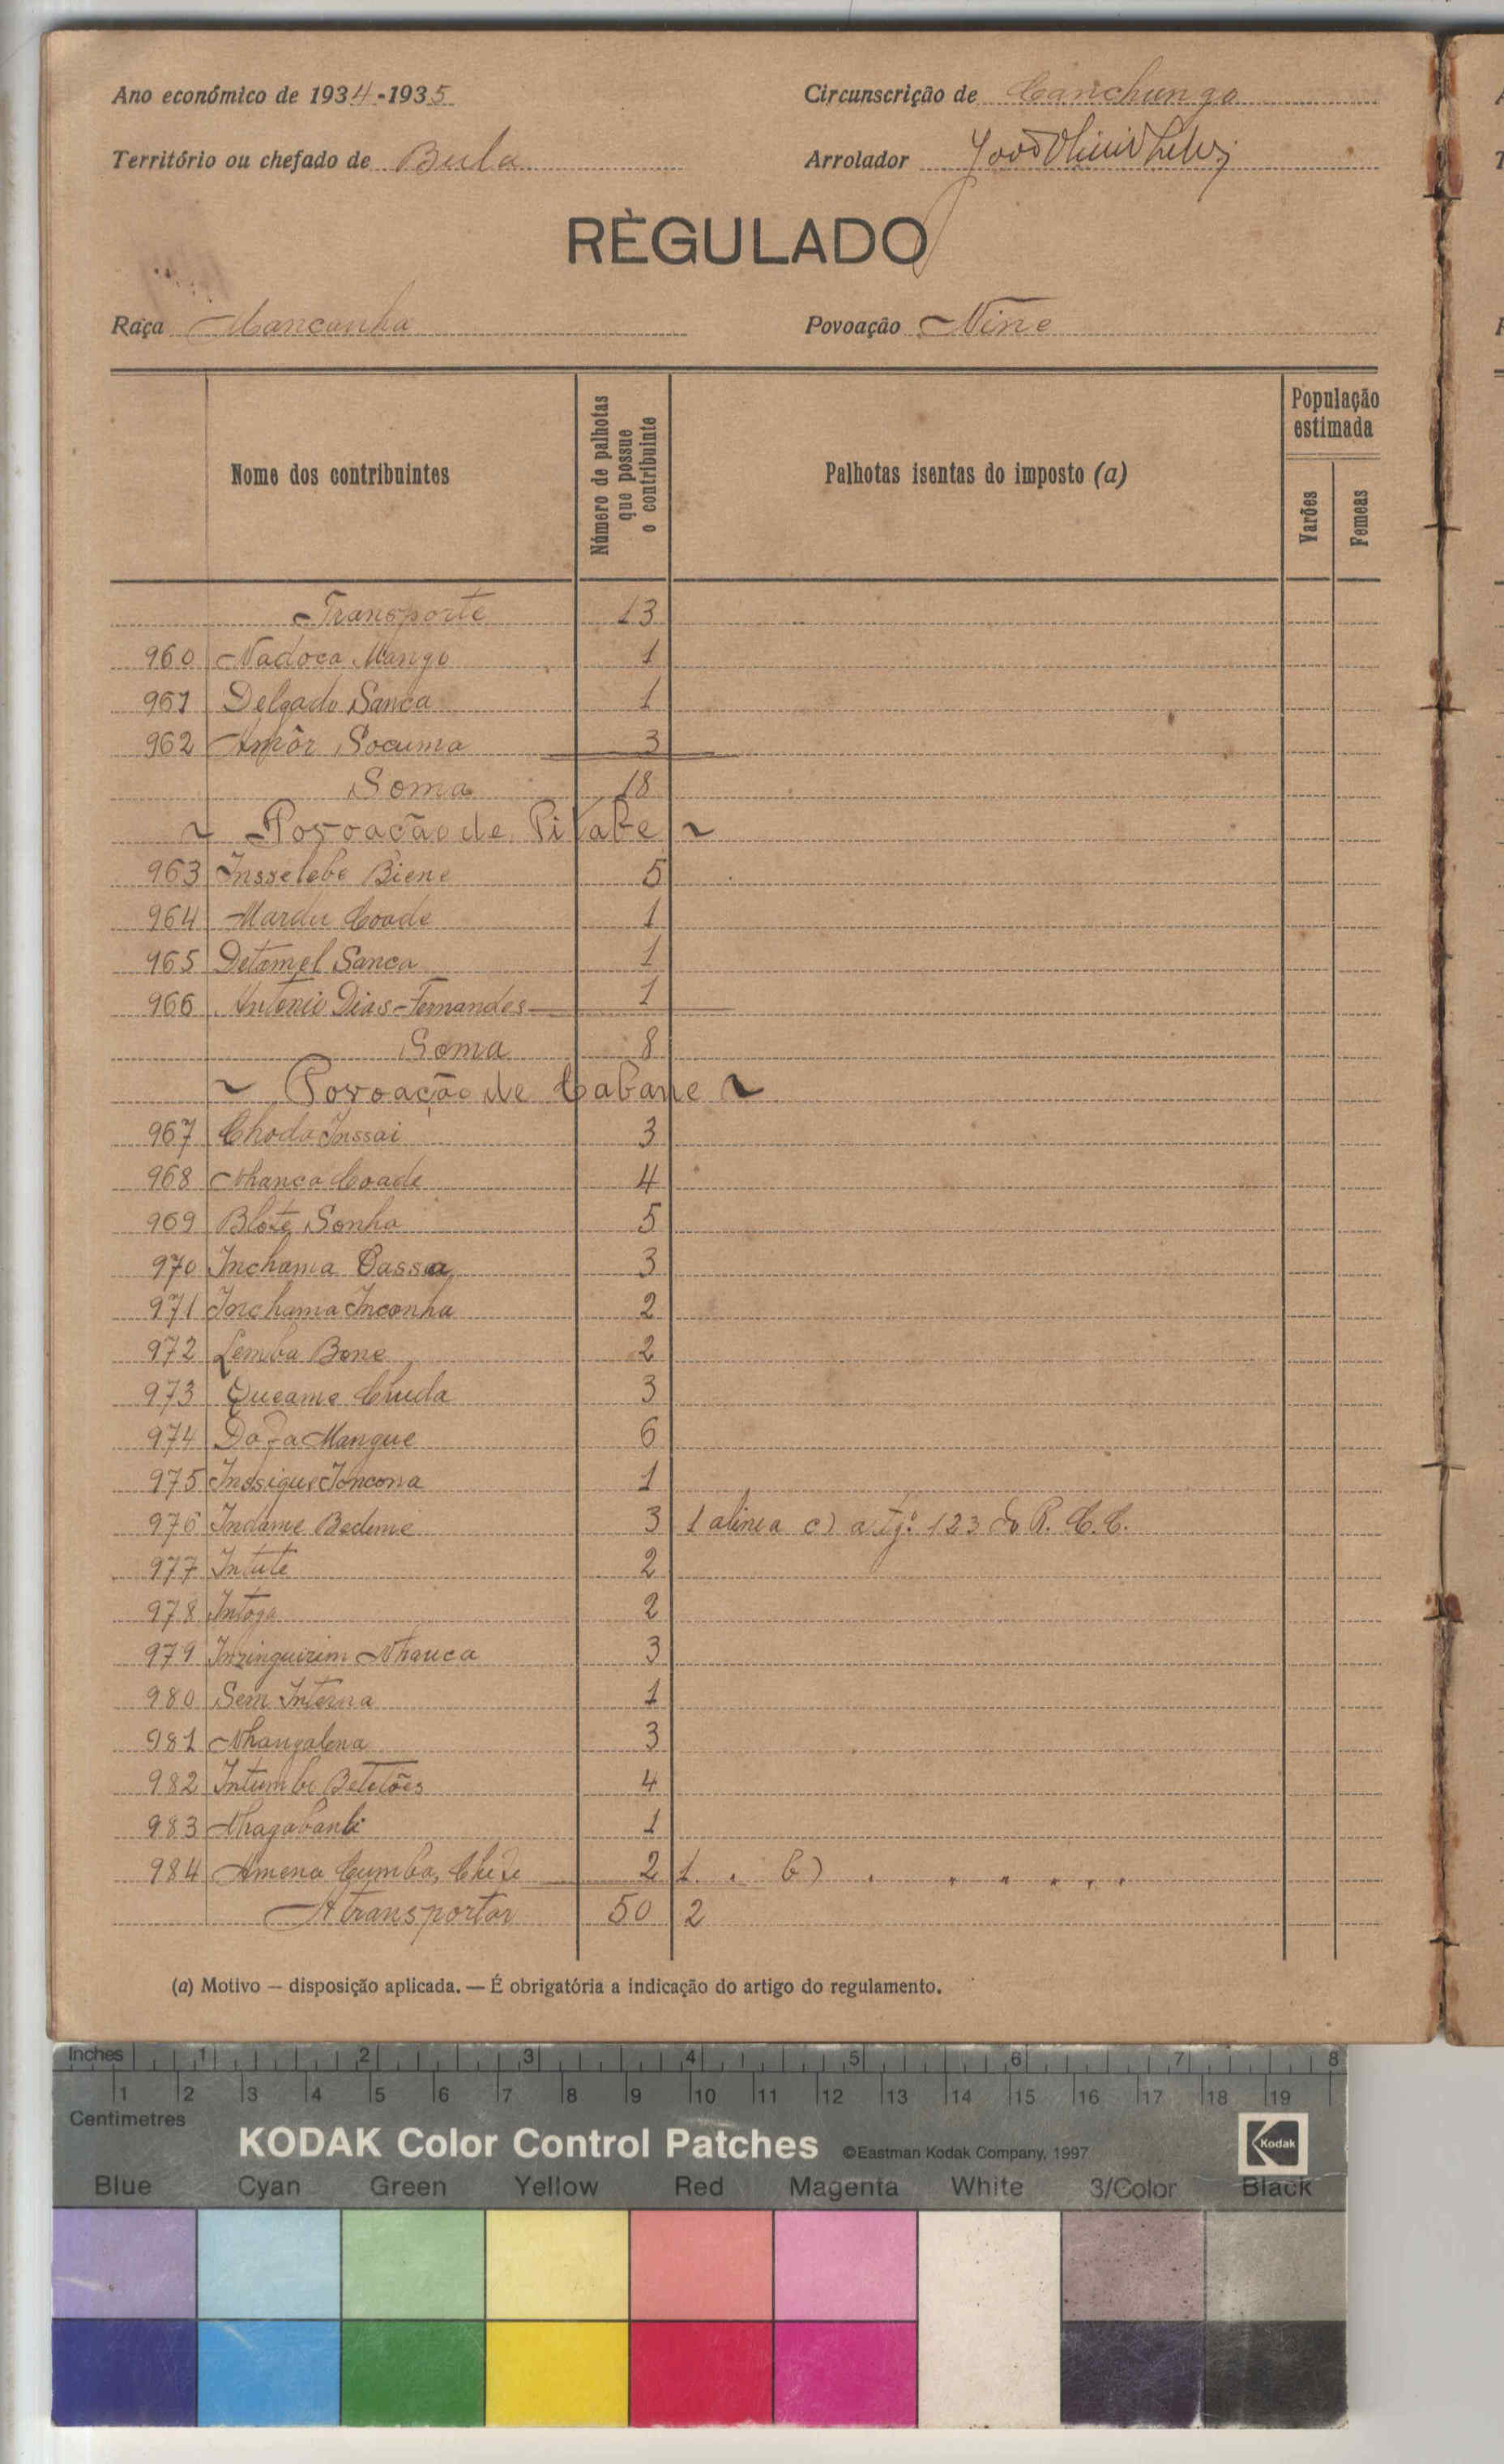 Ano económico de 1934-1935
Circunscrição de Canchungo
Território ou chefado de Bula
Arrolador
RÈGULADO
Raça Mancanha
Povoação Nine
Nome dos contribuintes
Número de palhotas que possue o contribuinte
Palhotas isentas do imposto (a)
População estimada
Varões
Femeas
Transporte 13
960 Nadoca Mango 1
961 Delgado Sanca 1
962 Ampôr Socuma 3
Soma 18
~ Povoação de ~
963 Insselebe Biene 5
964 Mardu Coade 1
965 Detomel Sanca 1
966 Antonio Dias-Fernandes 1
Soma 8
~ Povoação de Cabane ~
967 Choda Inssai 3
968 Nhanca Coade 4
969 Blote Sonha 5
970 Inchama Cassa 3
971 Inchama Inconha 2
972 Lemba Bone 2
973 Queame Chuda 3
974 Dofa Mangue 6
975 Inssique 1
976 Indame Bedeme 3 1 alinea c) atgº 123 do R. C. C.
977 Intute 2
978 Intoga 2
979 Inzinguirim Nhauca 3
980 Sem Interna 1
981 Nhangalena 3
982 Intumbe Betetões 4
983 Nhagabanli 1
984 Amena Cumba, 2 1 " b) " " " " " "
A transportar 50 2
(a) Motivo — disposição aplicada. — É obrigatória a indicação do artigo do regulamento.
Inches 1 2 3 4 5 6 7 8
1 2 3 4 5 6 7 8 9 10 11 12 13 14 15 16 17 18 19
Centimetres
KODAK Color Control Patches ©Eastman Kodak Company, 1997 Kodak
Blue Cyan Green Yellow Red Magenta White 3/Color Black